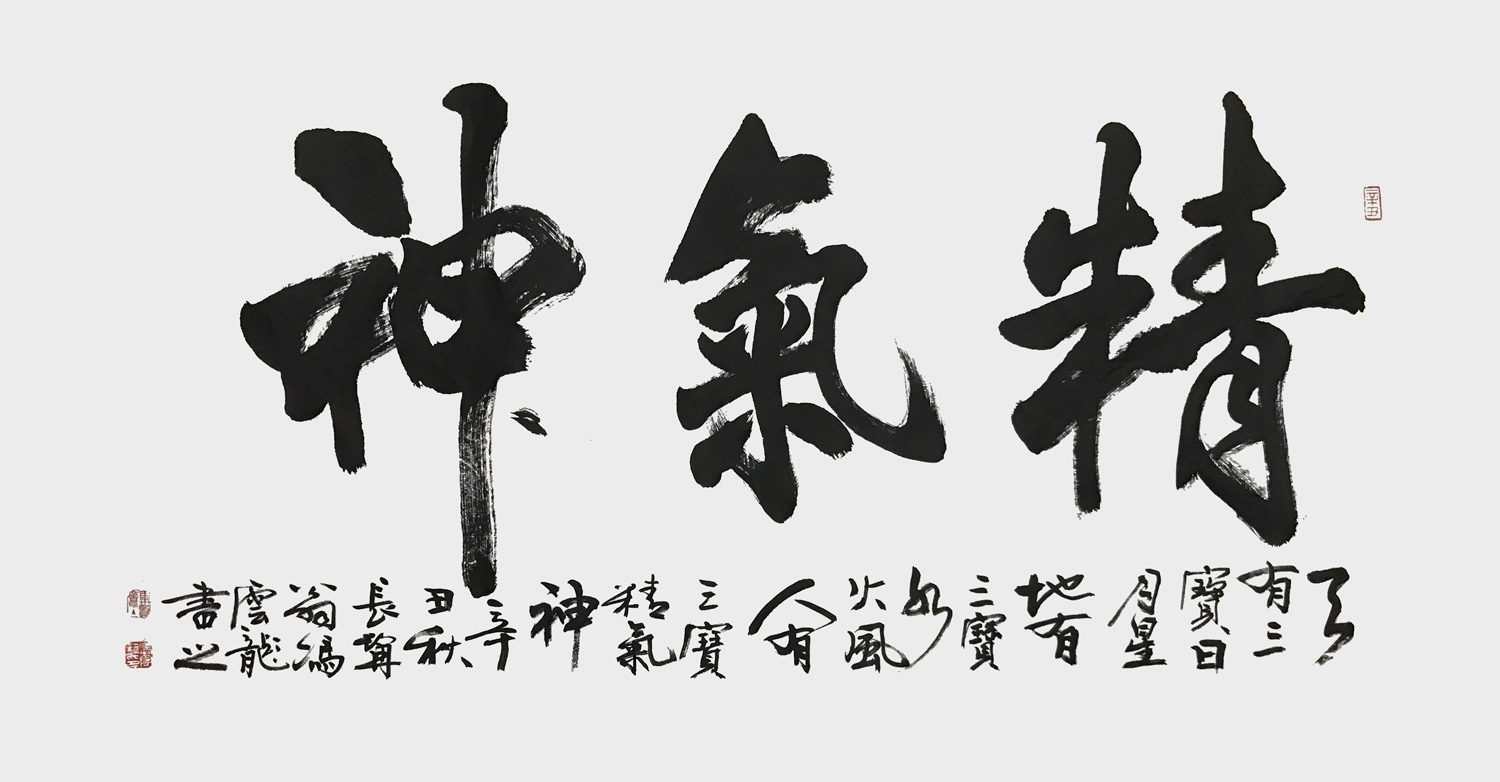 精氣神
天
有三
寶日
月星
地有
三寶
水
火風
人有
三寶
精氣
神
辛
丑秋
長
翁馮
雲龍
書之
辛丑